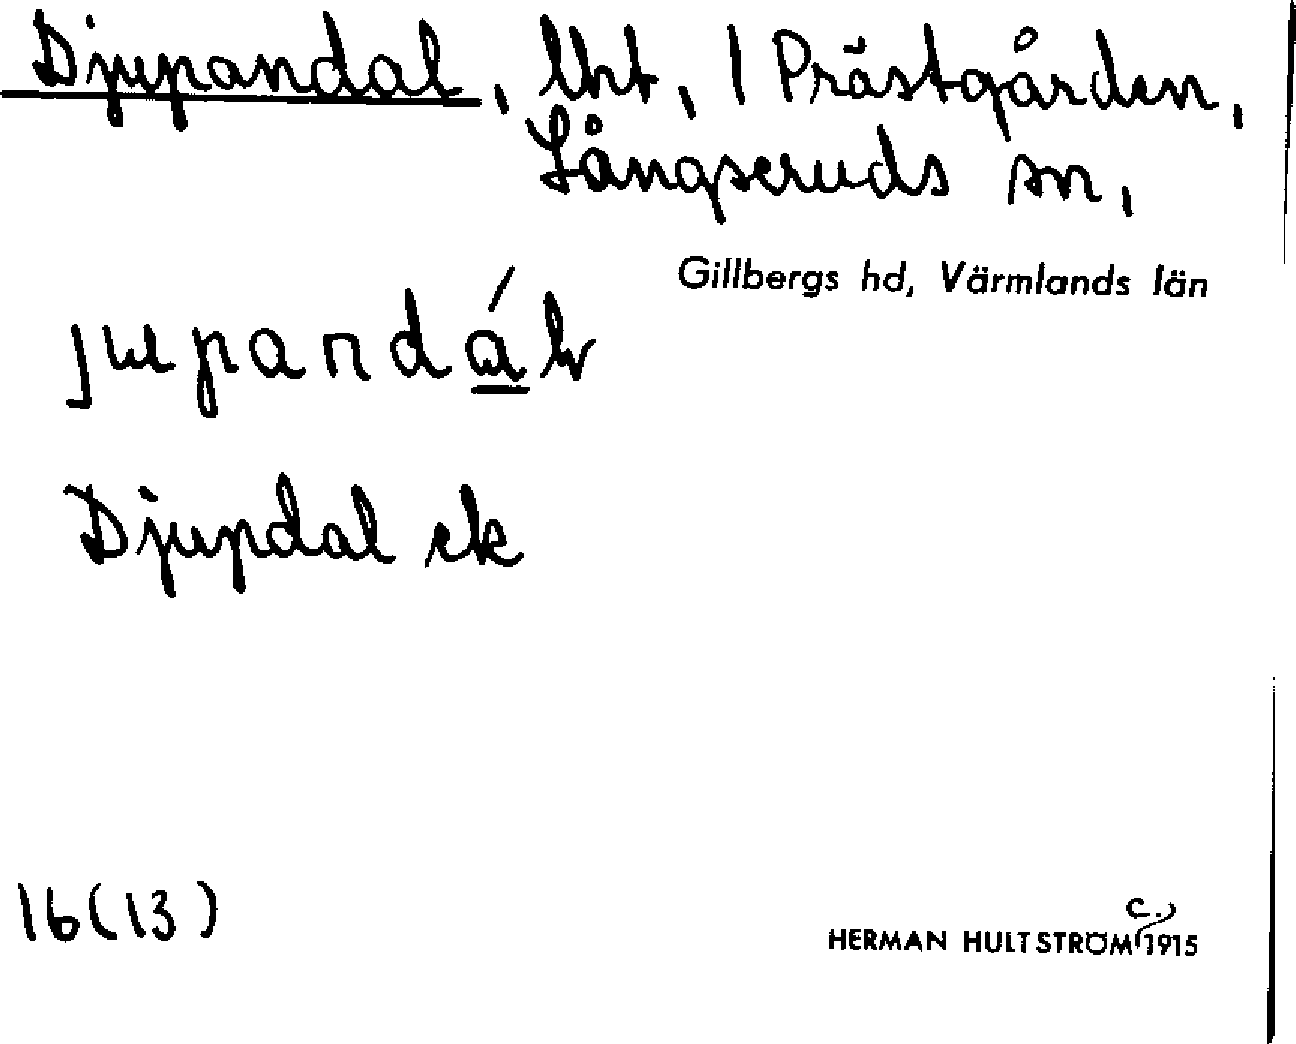 Djupandal, lht, 1 Prästgården,
Långseruds sn,
Gillbergs hd, Värmlands län
jupandál
Djupdal ek
16(13)
HERMAN HULTSTRÖM c. 1915